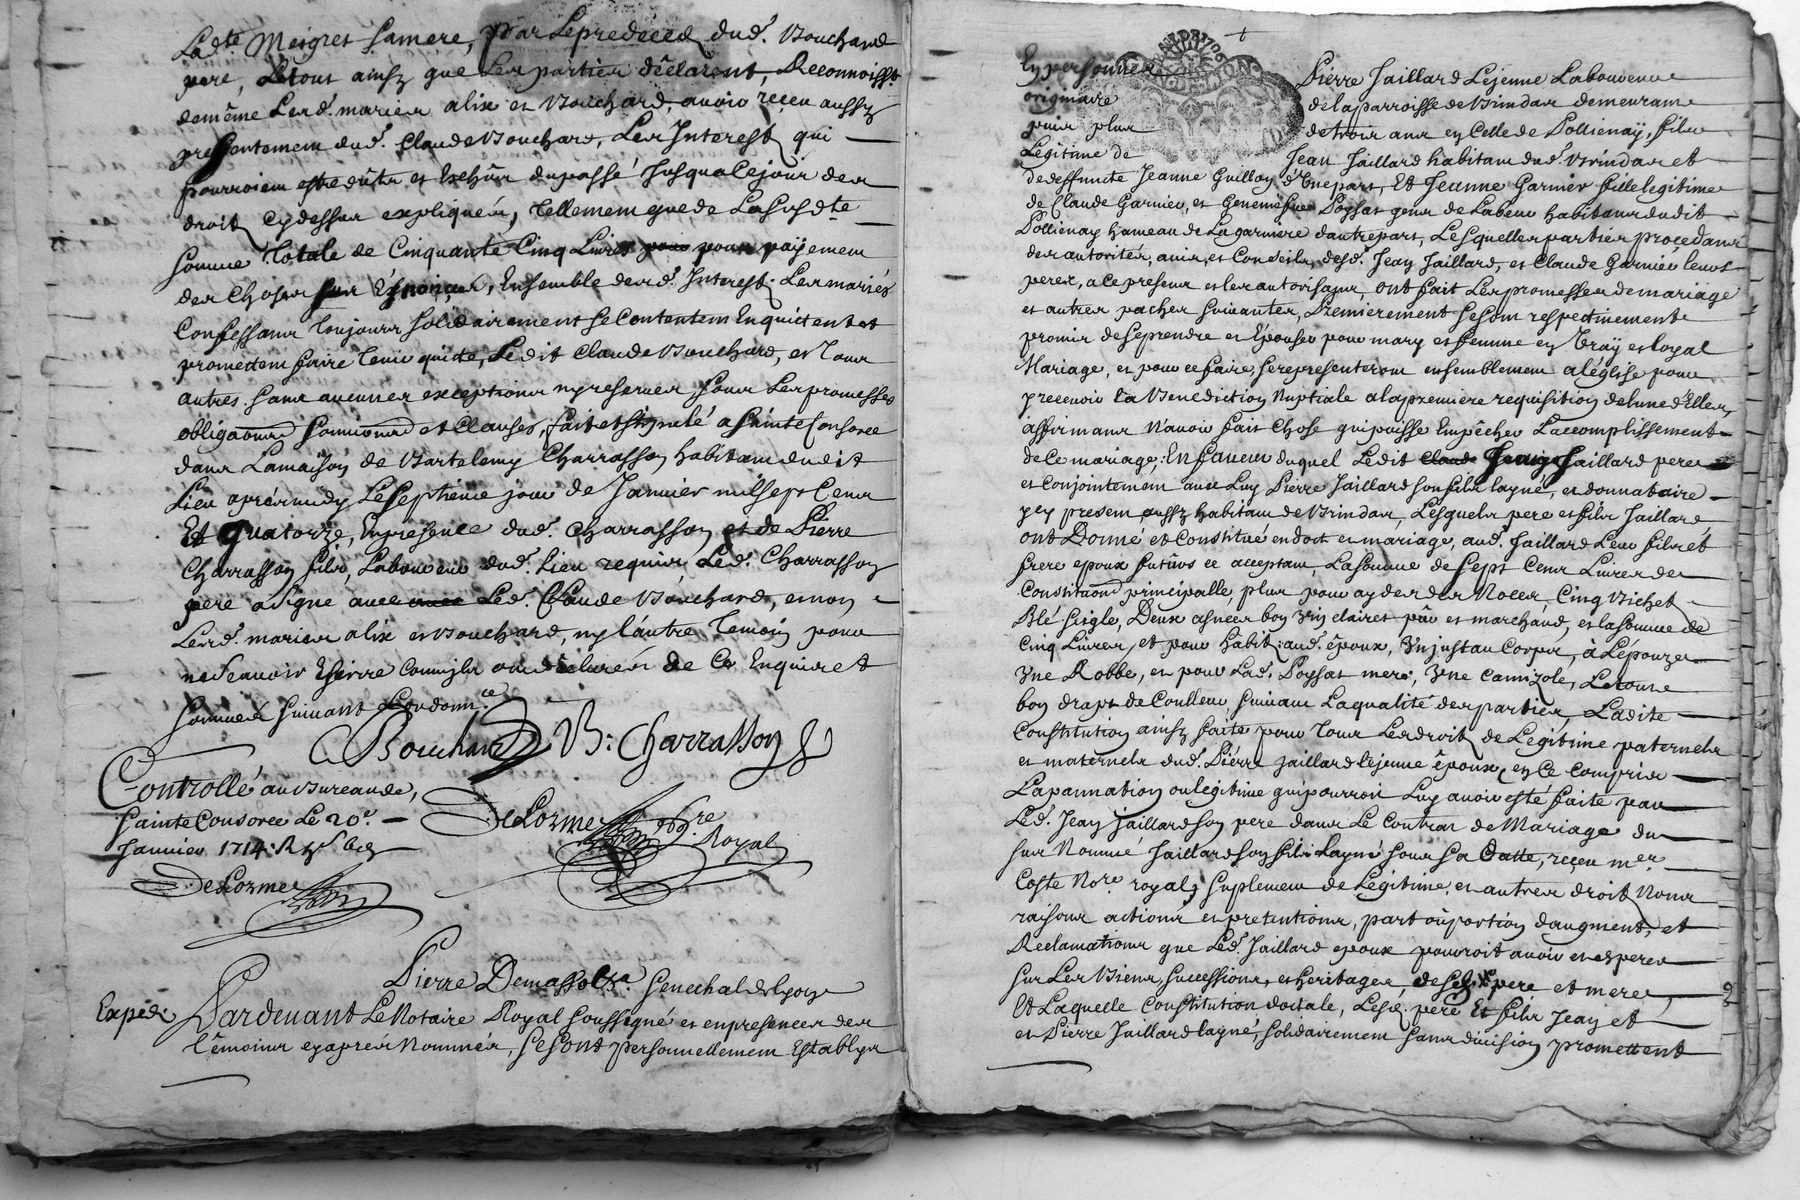 Lad.te Meigret Sa mere, par Le predeced dud.t Bouchard
pere, Le tout ainsy que Les parties declarent, Reconnoisst
de même Lesd. mariez alix et Bouchard, avoir reçeu aussy
presentement dud.t Claude Bouchard, Les Interest qui
pourroient estre dûts et Echûs du passé Jusqua Ce jour des
droits cy dessus expliquéz, tellement que de La Susd.te
Somme totale de Cinquante Cinq Livres pour payement
des choses Enoncees, Ensemble desd. Interest. Les mariés
Confessans toujours Solidairement Se Contentent En quittent et
promettent faire tenir quitte, Le dit Claude Bouchard, et tous
autres. Sans aucunes exceptions ny reserves Sous Les promesses
obligaons Soumions et Clauses, fait et Stipulé a Sainte Consorce
dans La maison de Bartelemy Charrasson habitant dudit
Lieu apres midy Le Septieme jour de Janvier mil Sept Cens
Et quatorze, En presence dud. Charrasson et de Pierre
Charrasson fils, Laboureur dud. Lieu requis, Led. Charrasson
pere a signé avec Led. Claude Bouchard, et non
Lesd. mariez alix et Bouchard, ny L'autre temoin pour
ne sçavoir Escrire comm'ils ont declarés de Ce Enquis et
Sommés Suivant L'ordonn.ce
Bouchard B: Charrasson
Controllé au Bureau de,
Sainte Consorce Le 20.e
Janvier 1714: R
DeLorme
DeLorme no.re Royal
Pierre Demassol Senechal de Lyon
Expéd. Pardevant Le Notaire Royal Soussigné et en presence des
têmoins cy apres Nommés, Se Sont personnellement Establys
En personnes Pierre Jaillard Le jeune Laboureur
originaire de la parroisse de Brindas demeurant
puis plus de trois ans en Celle de Pollienay, fils
Legitime de Jean Jaillard habitant dud. Brindas et
de deffuncte Jeanne Guillon d'Une part, Et Jeanne Garnier fille legitime
de Claude Garnier, et Genemefve Poyssat gens de Labeur habitans dudit
Pollienay hameau de La garniere d'autre part, Lesquelles parties procedans
des autorités, avis, et Conseils, desd. Jean Jaillard, et Claude Garnier leurs
peres, a ce presens et les autorisans ont fait Les promesses de mariage
et autres paches Suivantes, Premierement Se Sont respectivement
promis de Se prendre et Epouser pour mary et femme en Vray et Loyal
Mariage, et pour ce faire, Se representeront ensemblement a L'église pour
y recevoir La Benediction Nuptiale a la premiere requisition de L'une d'Elles,
affirmans N'avoir fait Chose qui puisse Empêcher L'accomplissement
de Ce mariage, En faveur duquel Ledit Claude Jean Jaillard pere
et Conjointement avec Luy Pierre Jaillard Son fils L'ayné, et donnataire
icy present aussy habitant de Brindas, Lesquels pere et fils Jaillard
ont Donné et Constitué en dot et mariage, aud. Jaillard Leur fils et
frere epoux futûrs ce acceptant, La Somme de Sept Cens Livres de
Constitu͠on principalle, plus pour ayder des Noces, Cinq Bichet
Blé Seigle, Deux asnees bon Vin clairet pûr et marchand, et la Somme de
Cinq Livres, et pour habits: aud. époux, Un justau Corps, à L'epouze
Une Robbe, et pour Lad. Poyssat mere, Une Camizole, Le tout
bon draps de Couleur, Suivant La qualité des parties, Ladite
Constitution ainsy faite pour tous Les droits de Legitime paternels
et maternels dud. Pierre Jaillard Le jeune époux, en Ce Compris
L'apannation ou legitime qui pourroit Luy avoir esté faite par
Led. Jean Jaillard Son pere dans Le Contrat de Mariage du
Sus Nommé Jaillard Son fils L'ayné Sous Sa Datte, reçeu m.er
Coste No.re royal, Suplement de Legitime et autres droits Noms
raisons actions et pretentions, part où portion d'augment, et
Reclamations que Led. Jaillard epoux pourroit avoir et esperer
Sur Les Biens, Successions, et heritages, de Sesd. pere et mere,
Et Laquelle Constitution dottale, Lesd. pere Et fils Jean et
et Pierre Jaillard L'ayné, Solidairement Sans division promettent